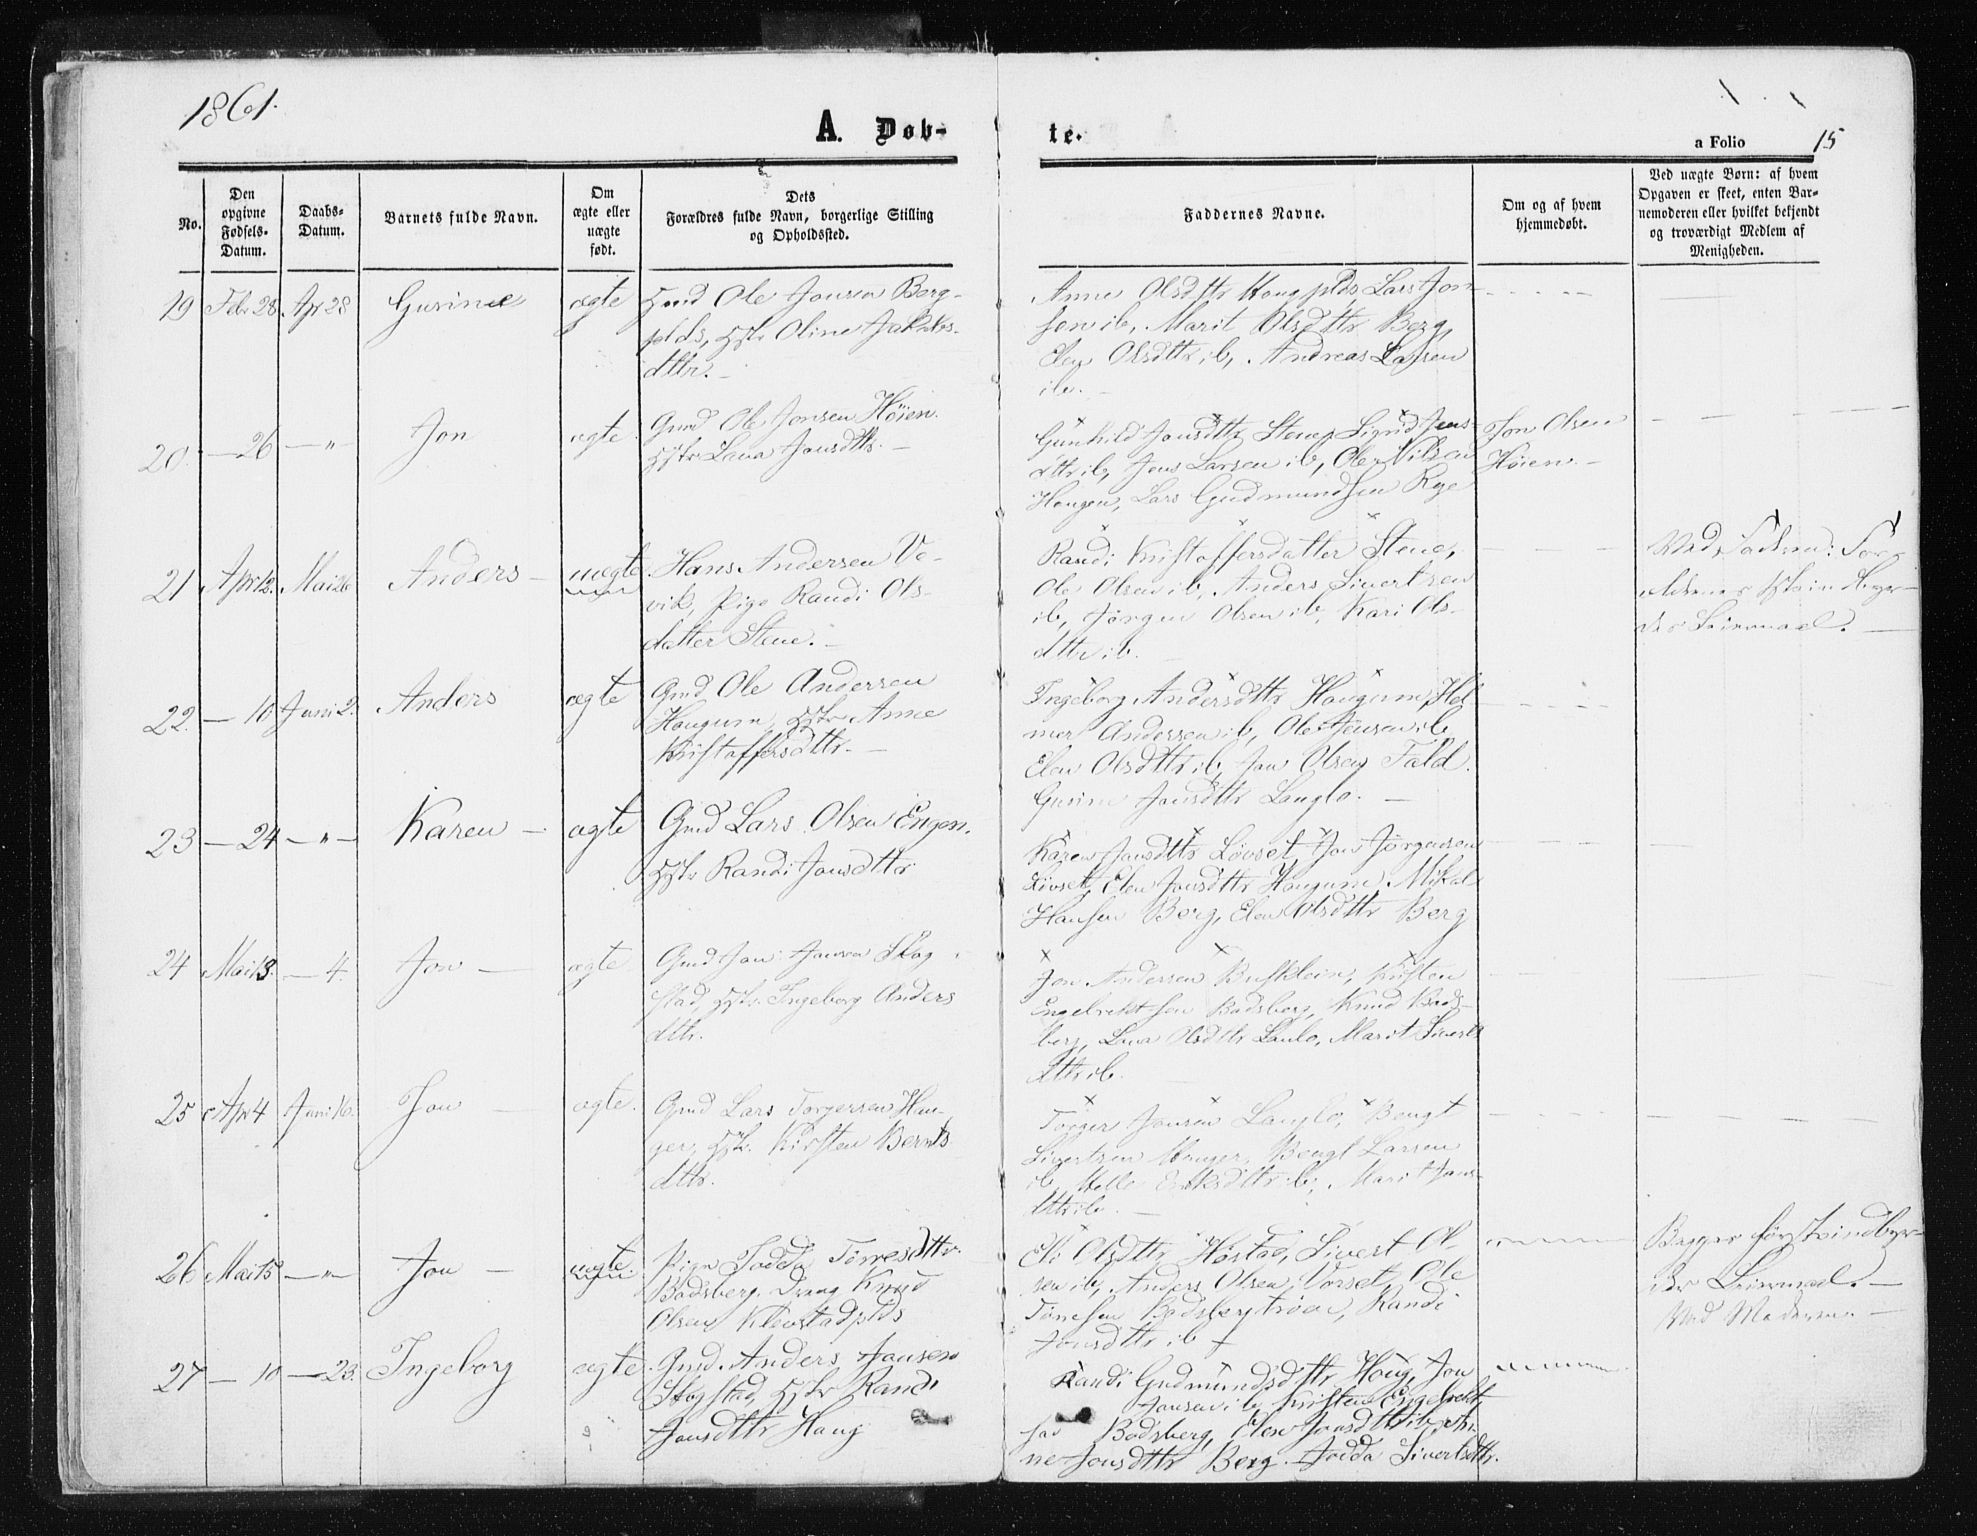 1861.
A. Døb-
te.
a Folio 15
No.
Den opgivne Fødsels-Datum.
Daabs-Datum.
Barnets fulde Navn.
Om ægte eller uægte født.
Dets Forældres fulde Navn, borgerlige Stilling og Opholdssted.
Faddernes Navne.
Om og af hvem hjemmedøbt.
Ved uægte Børn: af hvem Opgaven er skeet, enten Barnemoderen eller hvilket bekjendt og troværdigt Medlem af Menigheden.
19 Febr 28. Apr 28 Gurine ægte Hmd Ole Jonsen Berg-
plds, Hstr Oline Jakobs-
dttr. –
Anne Olsdttr Haugplds, Lars Jon-
sen ib, Marit Olsdttr Berg,
Elen Olsdttr ib, Andreas Larsen
ib. –
20. – 26 – " – Jon ægte. Gmd Ole Jonsen Höien.
Hstr Lava Jonsdttr. –
Gunhild Jonsdttr Stene, Sigrid Jens-
dttr ib, Jens Larsen ib, Ole Nilsen
Haugen, Lars Gudmundsen Rye
Jon Olsen
Höien. –
21 Apr 12. Mai 26 Anders – uægte Hans Andersen Ve-
vik, Pige Randi Ols-
datter Stene. –
Randi Kristoffersdatter Stene,
Ole Olsen ib, Anders Sivertsen
ib, Jörgen Olsen ib, Kari Ols-
dttr ib.
Ved Faderen: For-
ældrenes
Leiermaal. –
22. – 10 Juni 2. Anders ægte Gmd Ole Andersen
Haugum, Hstr Anne
Kristoffersdttr. –
Ingeborg Andersdttr Haugum, Hel-
mer Andersen ib, Ole Jensen ib,
Elen Olsdttr ib, Jon Olsen Fald.
Gurine Jonsdttr Langlo. –
23 – 24 – " – Karen – ægte Gmd Lars Olsen Engen.
Hstr Randi Jonsdttr
Karen Jonsdttr Lövset, Jon Jörgensen
Lövset, Elen Jonsdttr Haugum, Mikal
Hansen Berg, Elen Olsdttr Berg
24 Mai 13. – 4. Jon – ægte Gmd Jon Jonsen Skog-
stad, Hstr. Ingeborg Anders
dttr.
Jon Andersen Busklein, Kristen
Engebrektsen Badsberg, Knud Bads-
berg, Lava Olsdttr Lanlo, Marit Siverts
dttr ib.
25 Apr 4 Juni 16. Jon – ægte. Gmd Lars Torgersen Hau-
ger, Hstr. Kirsten Bernts-
dttr.
Torger Jonsen Langlo, Bengt
Sivertsen Hauger, Bengt Larsen
ib, Eriksdttr ib, Marit Jons-
dttr ib. –
26 Mai 15 – " – Jon – uægte. Pige Jødda Torresdttr
Badsberg. Dreng Knud
Olsen Klevstadplds
Eli Olsdttr Høstad, Sivert Ol-
sen ib, Anders Olsen Vorset, Ole
Toresen Badsbergtröen, Randi
Jonsdttr ib
Begges första
Leiermaal. –
Ved Moderen. –
27 – 10 – 23. Ingeborg ægte Gmd. Anders Jonsen
Skogstad, Hstr Randi
Jonsdttr Haug
Randi Gudmundsdttr Haug, Jon
Jonsen ib, Kristen Engebrekt-
sen Badsberg, Elen Jonsdttr ib, An-
ne Jonsdttr Berg. Jødda Sivertsdttr.